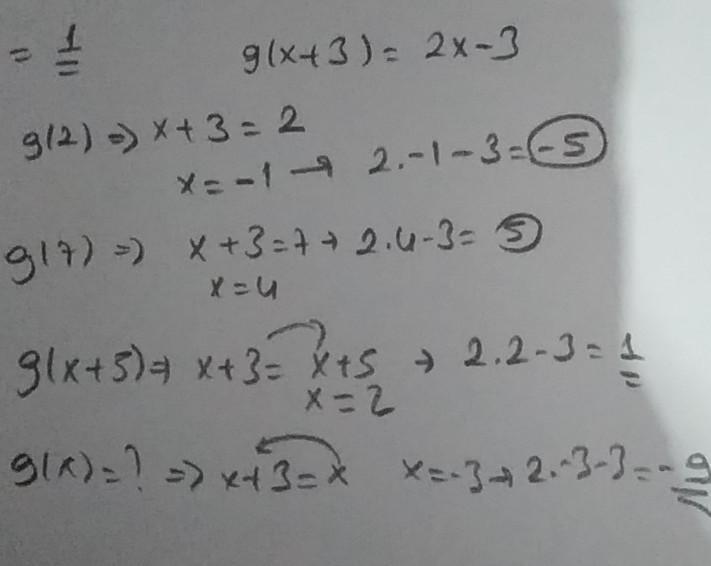 = 1 g(x+3) = 2x-3
g(2) => x+3=2
x=-1 → 2.-1-3=-5
g(7) => x+3=7 → 2.4-3= 5
x=4
g(x+5) => x+3= x+5 → 2.2-3=1
x=2
g(x)=? => x+3=x x=-3 → 2.-3-3=-9